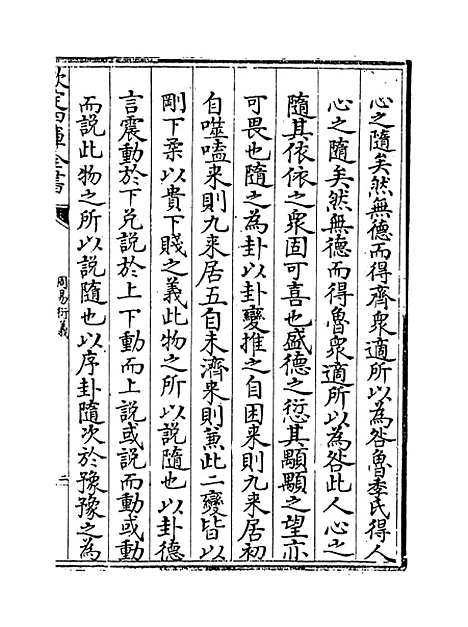 心之隨矣然無德而得齊衆適所以為咎魯季氏得人
心之隨矣然無德而得魯衆適所以為咎此人心之
隨其依依之衆固可喜也盛德之愆其顒顒之望亦
可畏也隨之為卦以卦變推之自困来則九来居初
自噬嗑来則九来居五自未濟来則兼此二變皆以
剛下柔以貴下賤之義此物之所以説隨也以卦德
言震動於下兑説於上下動而上説或説而動或動
而説此物之所以説隨也以序卦隨次於豫豫之為
欽定四庫全書
周易衍義
二